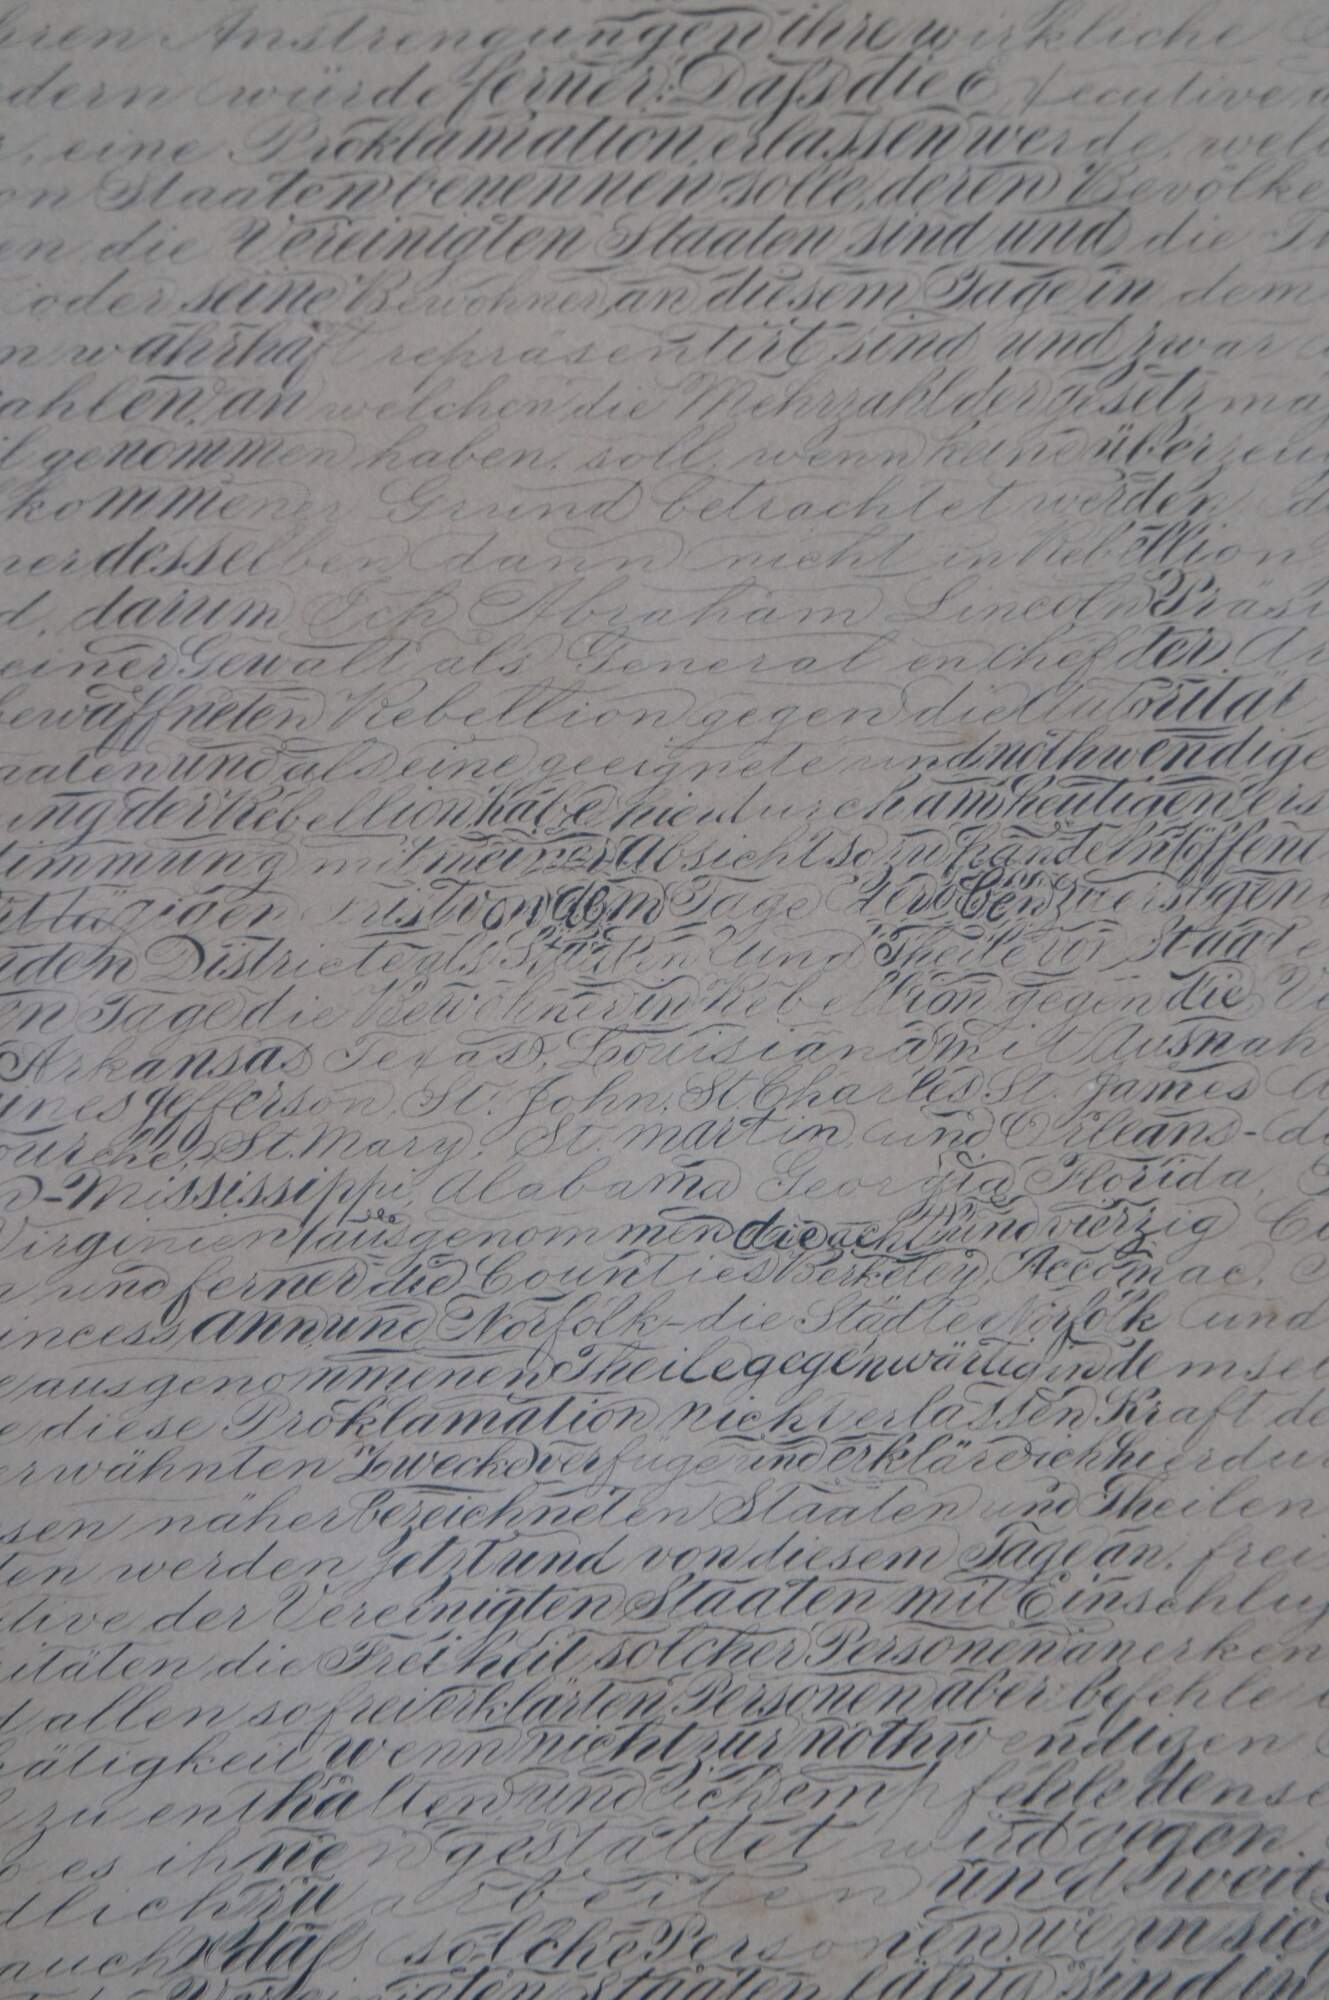 hren Anstrengungen ihre wirkliche
dern würde ferner: Daß die Executive
eine Proklamation erlassen werde, welc
on Staaten benennen solle, deren Bevölke
en die Vereinigten Staaten sind und die Th
oder seine Bewohner, an diesem Tage in dem
n wahrhaft repräsentirt sind und zwar
ahlen, an welchen die Mehrzahl der gesetzmä
il genommen haben, soll, wenn kein überzeug
kommener Grund betrachtet werden, d
ner desselben dann nicht in Rebellion
d, darum Ich Abraham Lincoln Präsi
einer Gewalt als General en Chef der Ar
bewaffneten Rebellion gegen die Autorität
aaten und als eine geeignete und nothwendige
ng der Rebellion habe hierdurch am heutigen ers
timmung mit meiner Absicht so zu handeln (öffent
tägigen Frist von dem Tage
den Districte als Staaten und Theile von Staate
en Tage die Bewohner in Rebellion gegen die Ve
Arkansas, Texas, Louisiana mit Ausnah
ines Jefferson, St. John, St. Charles, St. James
ourche, St. Mary, St. Martin und Orleans - d
-Mississippi, Alabama Georgia Florida,
Virginien (ausgenommen die acht und vierzig Co
n und ferner die Counties Berkeley, Accomac,
incess Ann und Norfolk - die Städte Norfolk und
e ausgenommenen Theile gegenwärtig in demsel
e diese Proklamation nicht erlassen Kraft de
erwähnten Zwecke verfüge und erkläre ich hierdur
sen näher bezeichneten Staaten und Theilen
ten werden jetzt und von diesem Tage an, frei
tive der Vereinigten Staaten mit Einschluß
itäten die Freiheit solcher Personen anerken
d allen so frei erklärten Personen aber befehle
ätigkeit wenn nicht zur nothwendigen
zu enthalten und ich empfehle dense
o es ihnen gestattet wird gegen
dlich zu arbeiten und weit
auch, daß solche Personen wenn sie
Vereinigten Staaten fähig sind in